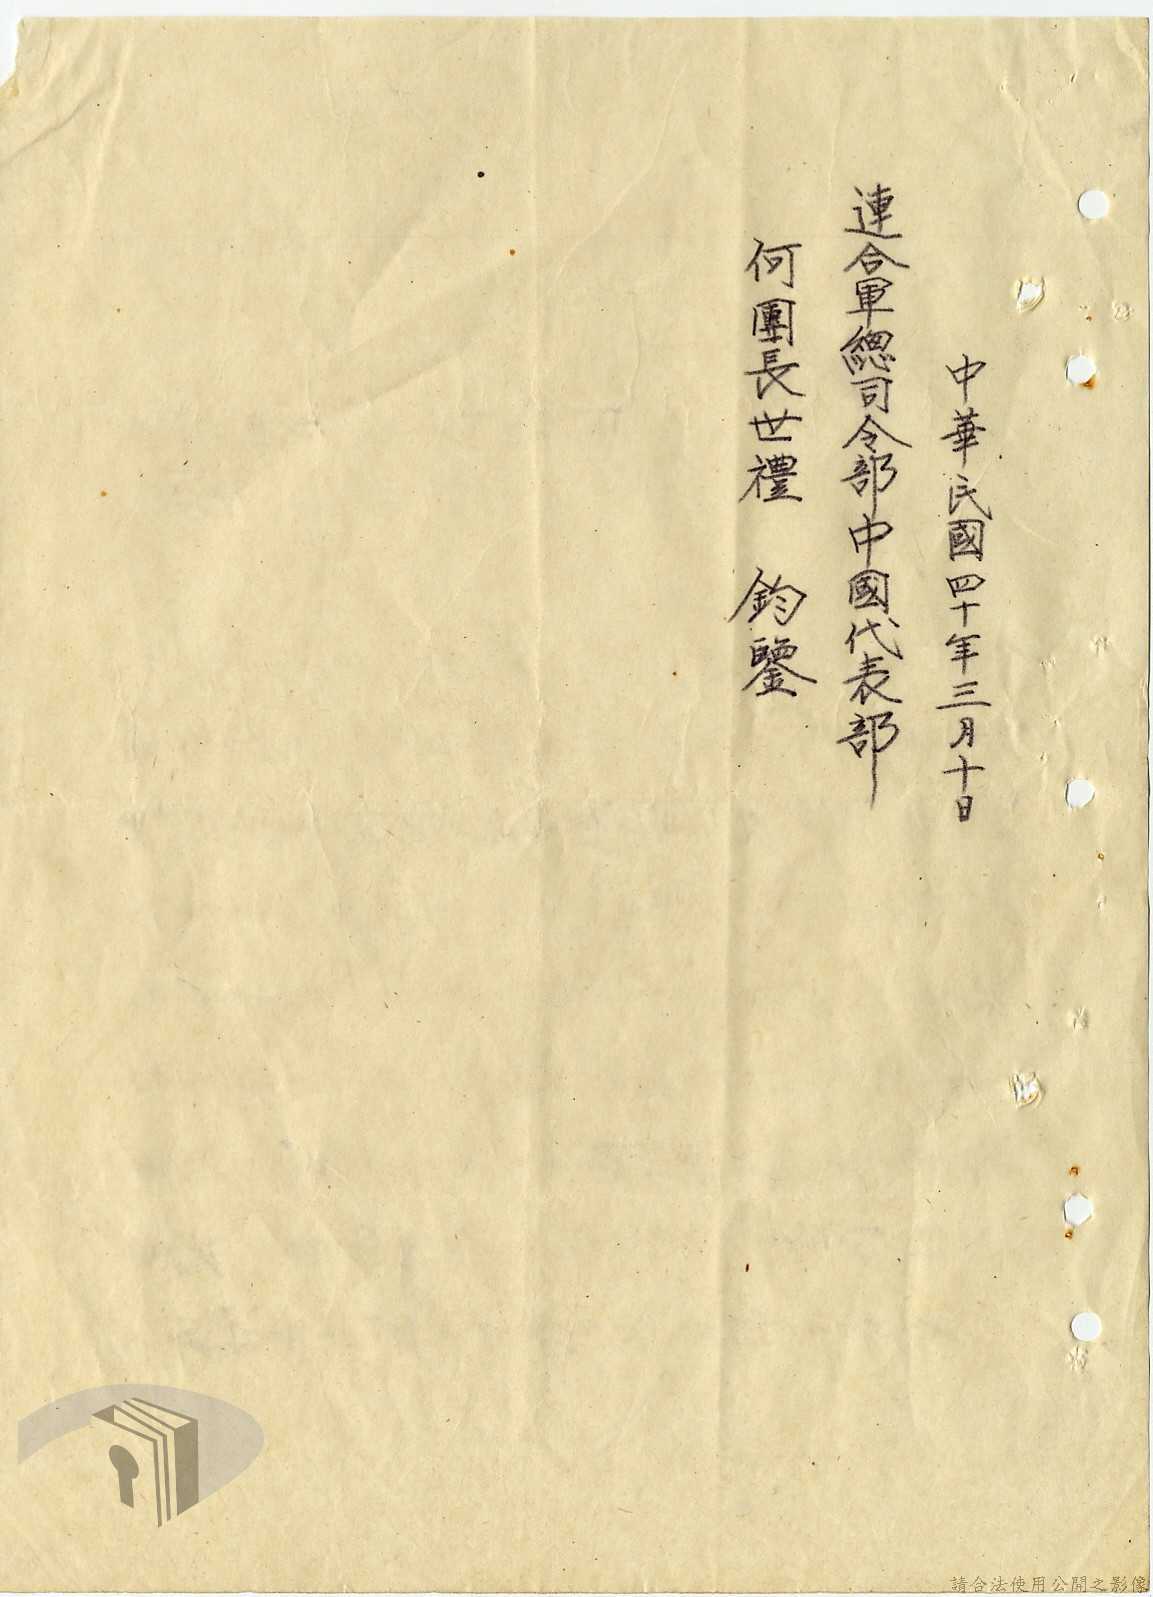 中華民國四十年三月十日
連合軍總司令部中國代表部
何團長世禮　鈞鑒
請合法使用公開之影像